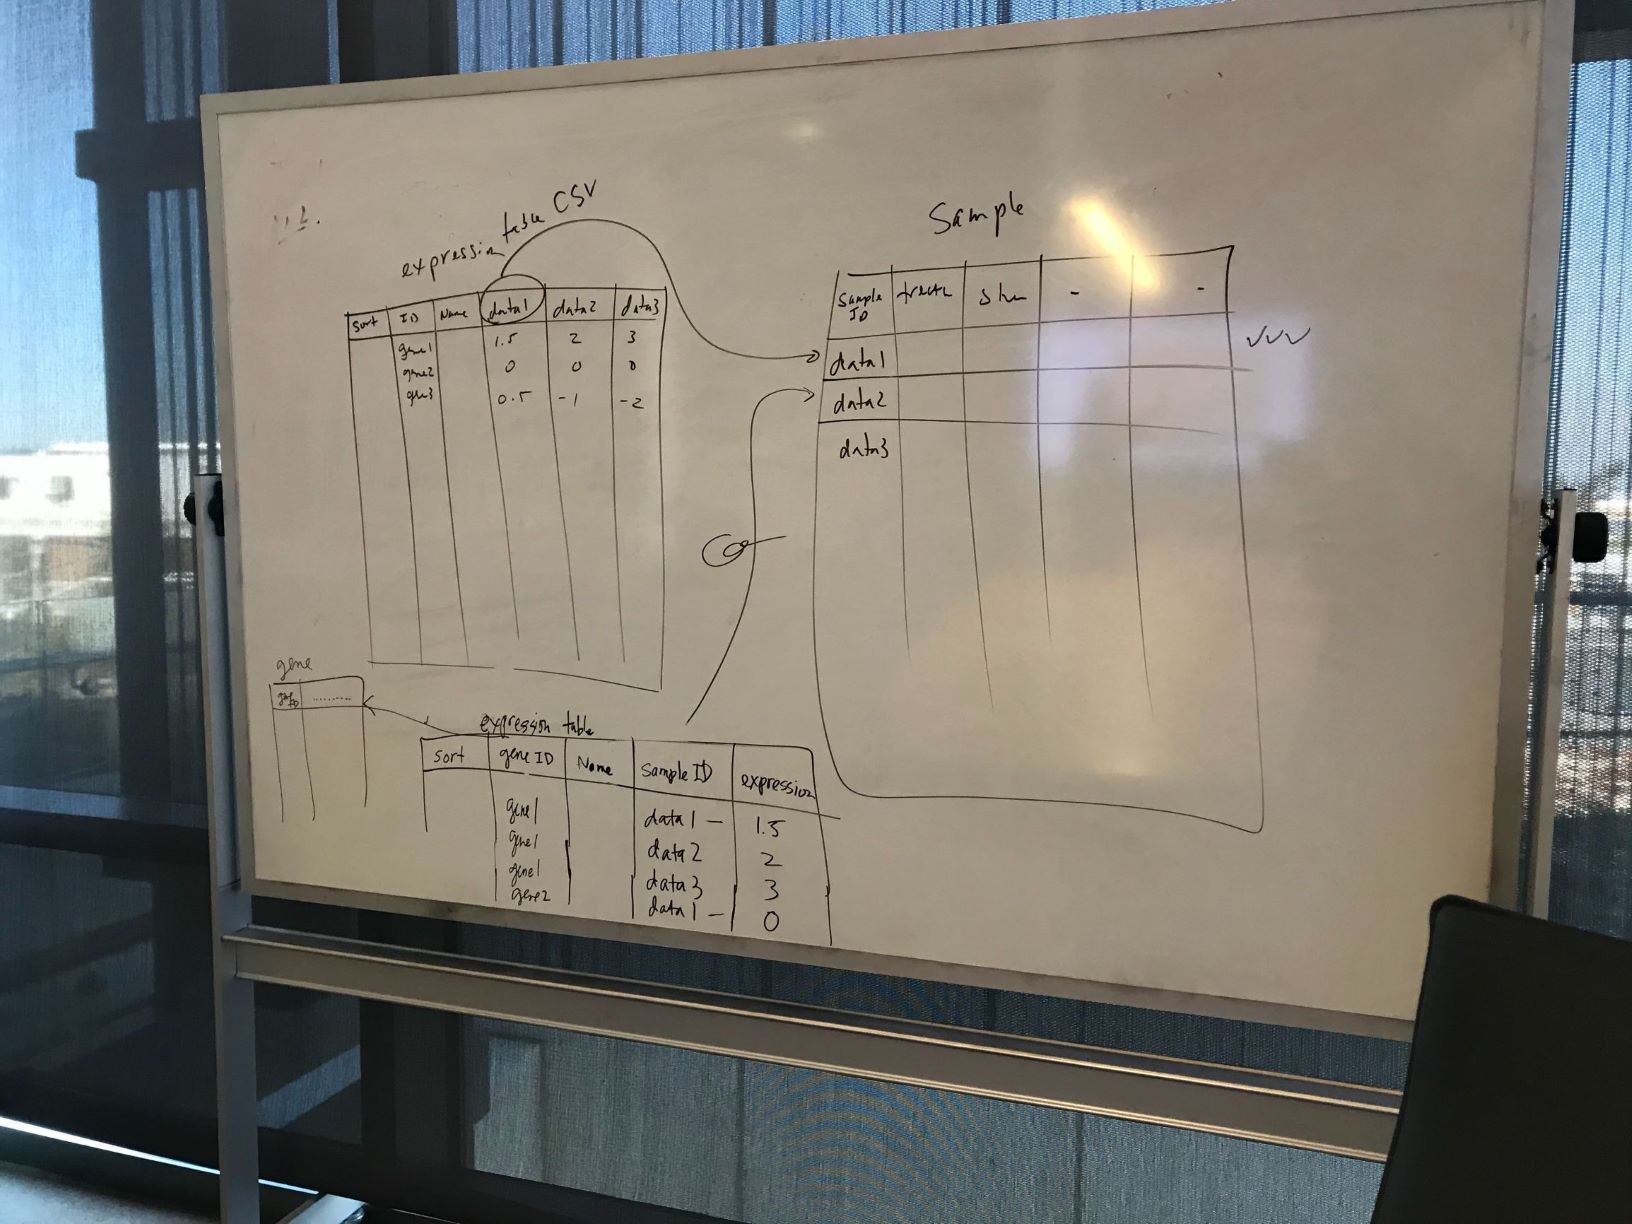 expression table CSV
sort ID Name data1 data2 data3
gene1 1.5 2 3
gene2 0 0 0
gene3 0.5 -1 -2
Sample
Sample ID - -
data1
data2
data3
gene
expression table
Sort gene ID Name Sample ID expression
gene1 data1 - 1.5
gene1 data2 2
gene1 data3 3
gene2 data1 - 0